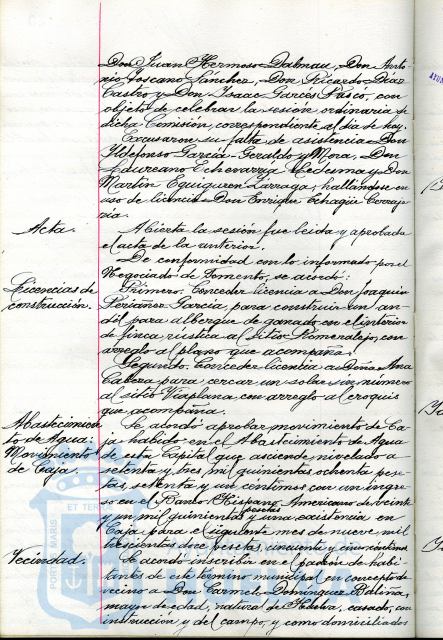 Don Juan Hermoso Dalmau, Don Anto-
nio Toscano Sánchez, Don Ricardo Díaz
Castro y Don Isaac Garcés Puscó, con
objeto de celebrar la sesión ordinaria de
dicha Comisión, correspondiente al día de hoy.
Excusaron su falta de asistencia Don
Ildefonso García-Geraldo y Mora, Don
Laureano Echevarría Ledesma y Don
Martín Eguiguren Lárraga, hallándose en
uso de licencia Don Enrique Echagüe
Acta.
Abierta la sesión fue leida y aprobada
el acta de la anterior.
De conformidad con lo informado por el
Negociado de Fomento, se acordó:
Licencias de
construcción.
Primero: Conceder licencia a Don Joaquín
Periañez García, para construir un an-
dél para albergue de ganado en el interior
de finca rustica al sitio Romeralejo, con
arreglo al plano que acompaña.
Segundo. Conceder licencia a Doña Ana
Cabeza para cercar un solar sin número
al sitio Viaplana con arreglo al croquis
que acompaña.
Abastecimien
to de Agua:
Movimiento
de Caja.
Se acordó aprobar movimiento de Ca-
ja habido en el Abastecimiento de Agua
de esta Capital que asciende nivelado a
setenta y tres mil quinientas ochenta pese-
tas, setenta y un céntimos con un ingre-
so en el Banco Hispano Americano de veinte
y un mil quinientas pesetas y una existencia en
Caja para el siguiente de nueve mil
trescientas dos pesetas, cincuenta y cinco céntimos
Vecindad.
Se acordó inscribir en el padrón de habi-
tantes de este termino municipal en concepto de
vecino a Don Carmelo Domínguez
mayor de edad, natural de Huelva, casado, con
instrucción y del campo, y como domiciliados
ET TERRÆ
PORTUS MARIS